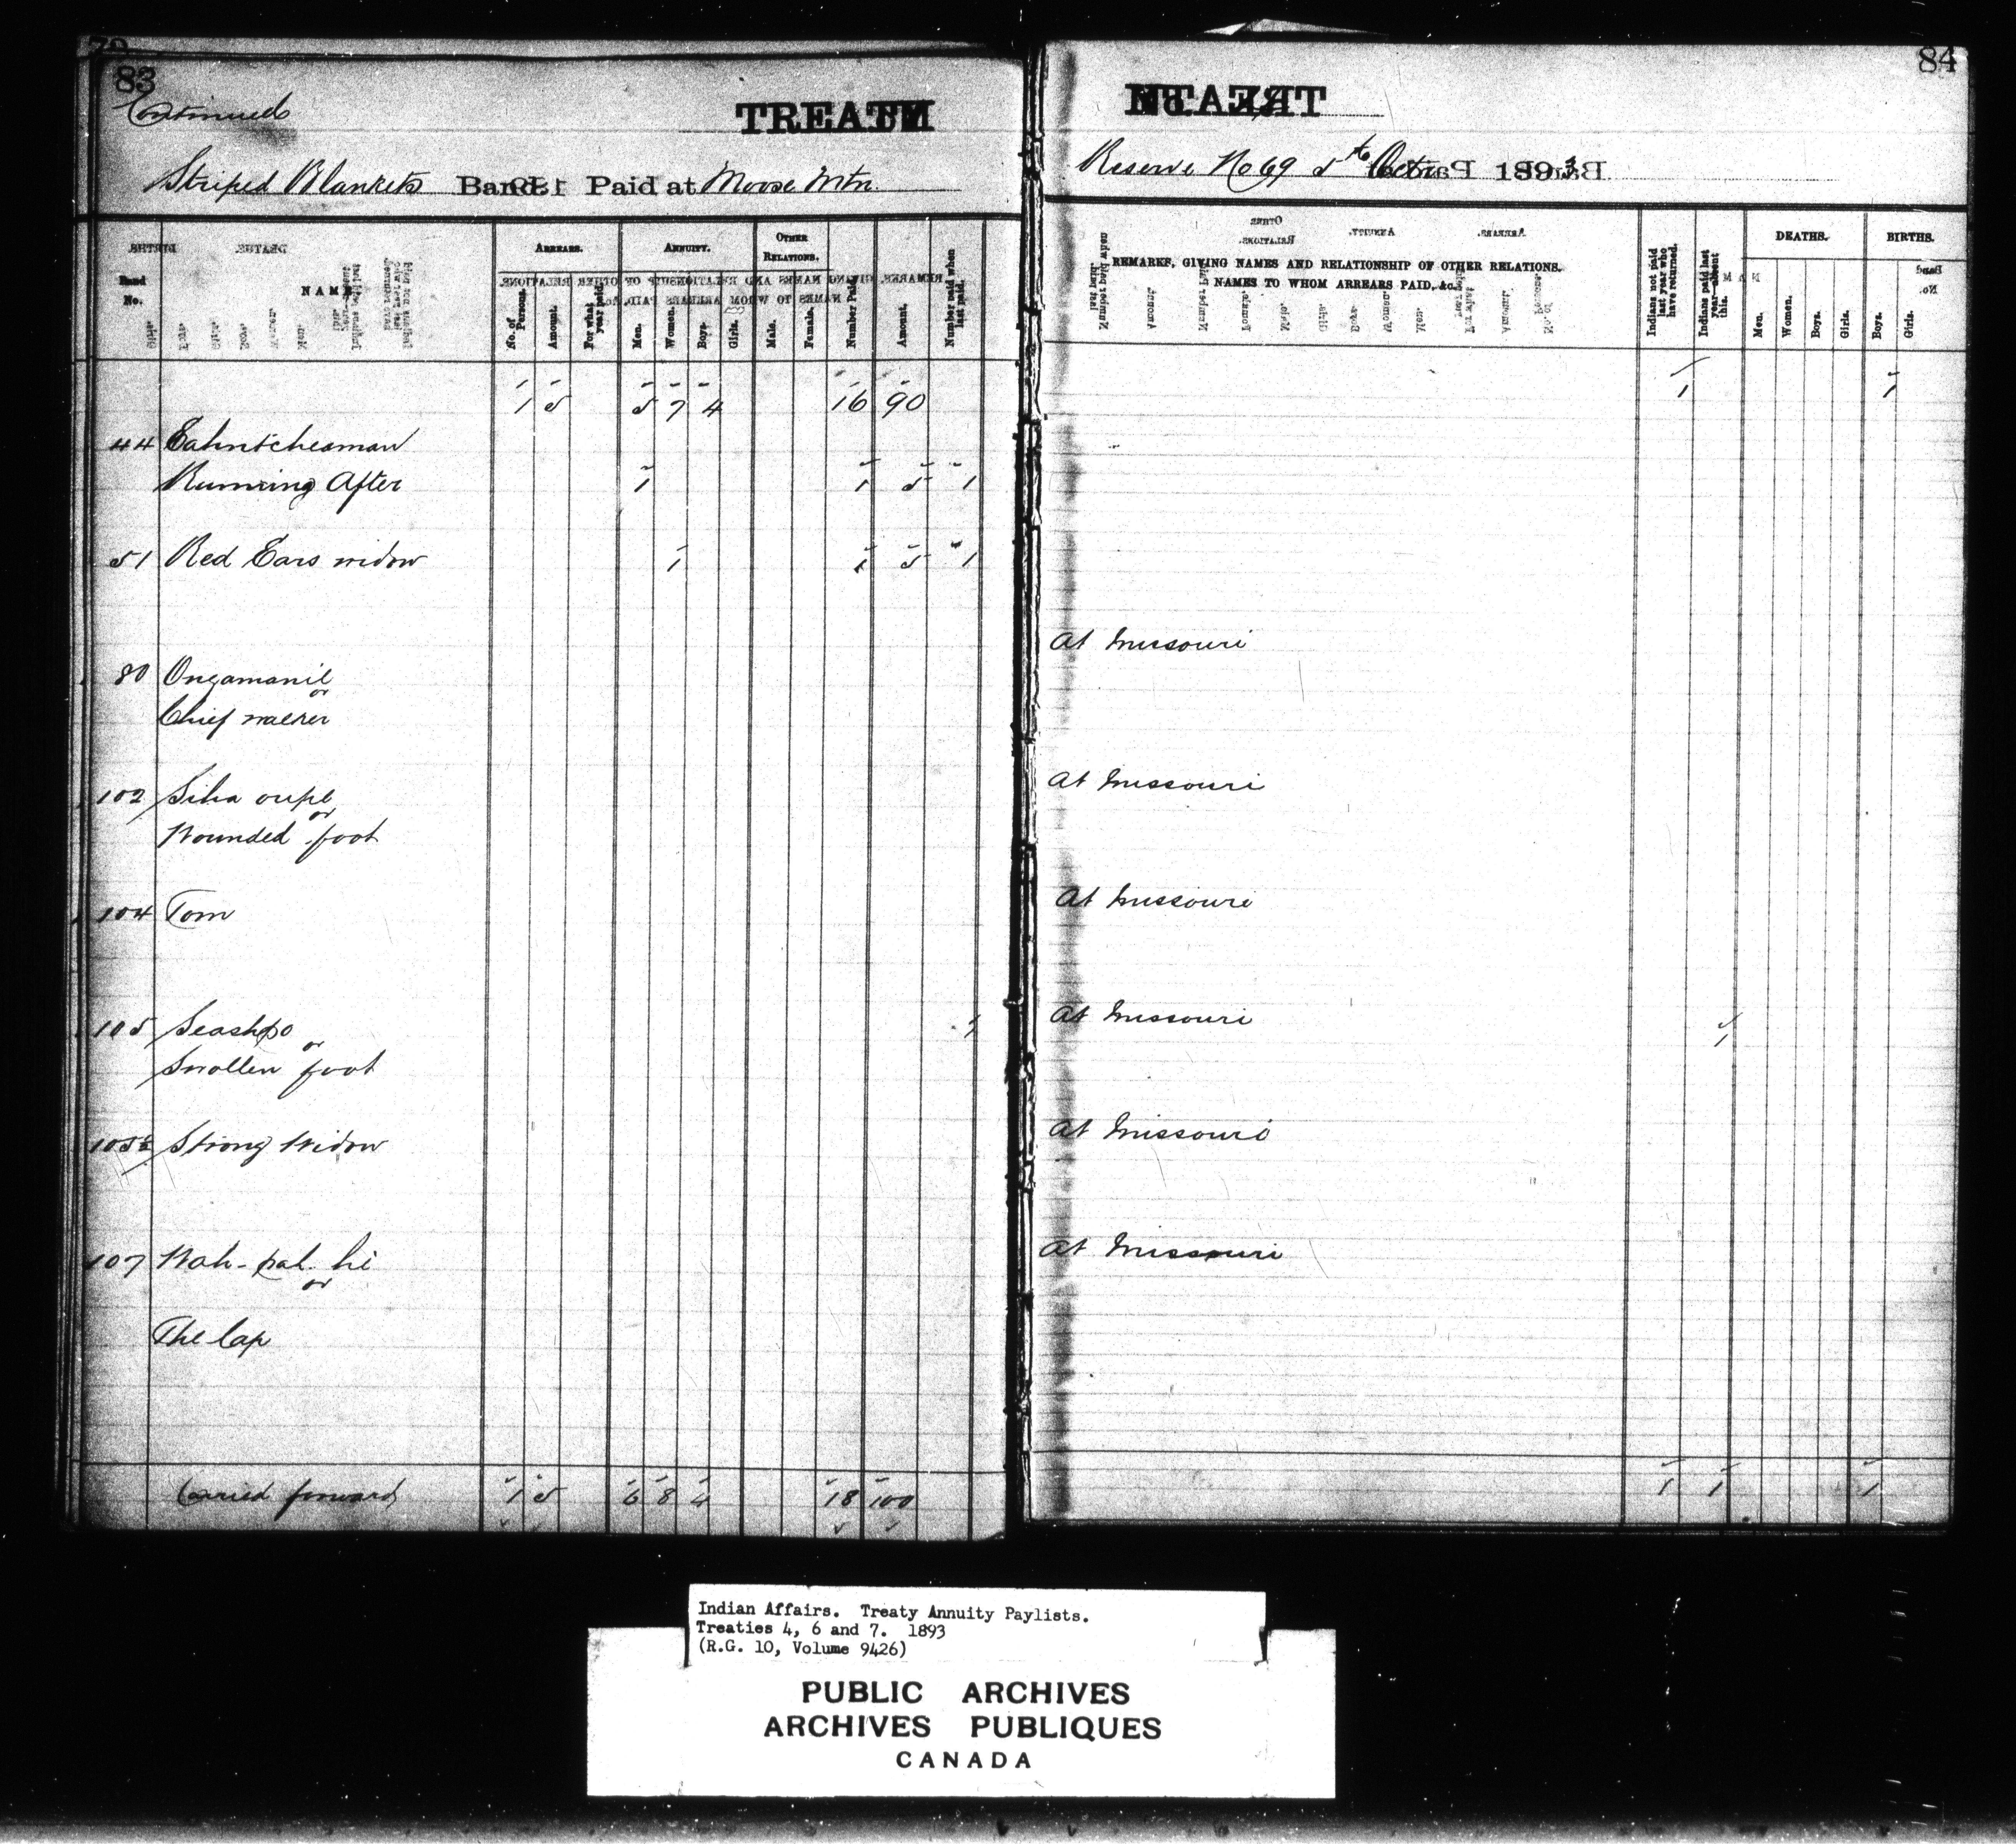 83
Continued
TREATY
Striped Blankets Band Paid at Moose Mtn.
Band No.
NAME
ARREARS.
ANNUITY.
OTHER RELATIONS.
No. of Persons.
Amount.
For what year paid.
Men.
Women.
Boys.
Girls.
Male.
Female.
Number Paid.
Amount.
Number paid when last paid.
1 5 5 7 4 16 90
44
Running After 1 1 5 1
51 Red Ears widow 1 1 5 1
80 Ongamanil
or
Chief walker
102 Siha oupe
or
Wounded foot
104 Tom
105 Seashpo 1
or
Swollen foot
105½ Strong Widow
107 Wah-pah-hi
or
The Cap
Carried forward 1 5 6 8 4 18 100
84
Reserve No 69 5th Octr 1893
REMARKS, GIVING NAMES AND RELATIONSHIP OF OTHER RELATIONS.
NAMES TO WHOM ARREARS PAID, &c.
Indians not paid last year who have returned.
Indians paid last year absent this.
DEATHS.
Men.
Women.
Boys.
Girls.
BIRTHS.
Boys.
Girls.
1 1
At Missouri
At Missouri
At Missouri
At Missouri 1
At Missouri
At Missouri
1 1 1
Indian Affairs. Treaty Annuity Paylists.
Treaties 4, 6 and 7. 1893
(R.G. 10, Volume 9426)
PUBLIC ARCHIVES
ARCHIVES PUBLIQUES
CANADA